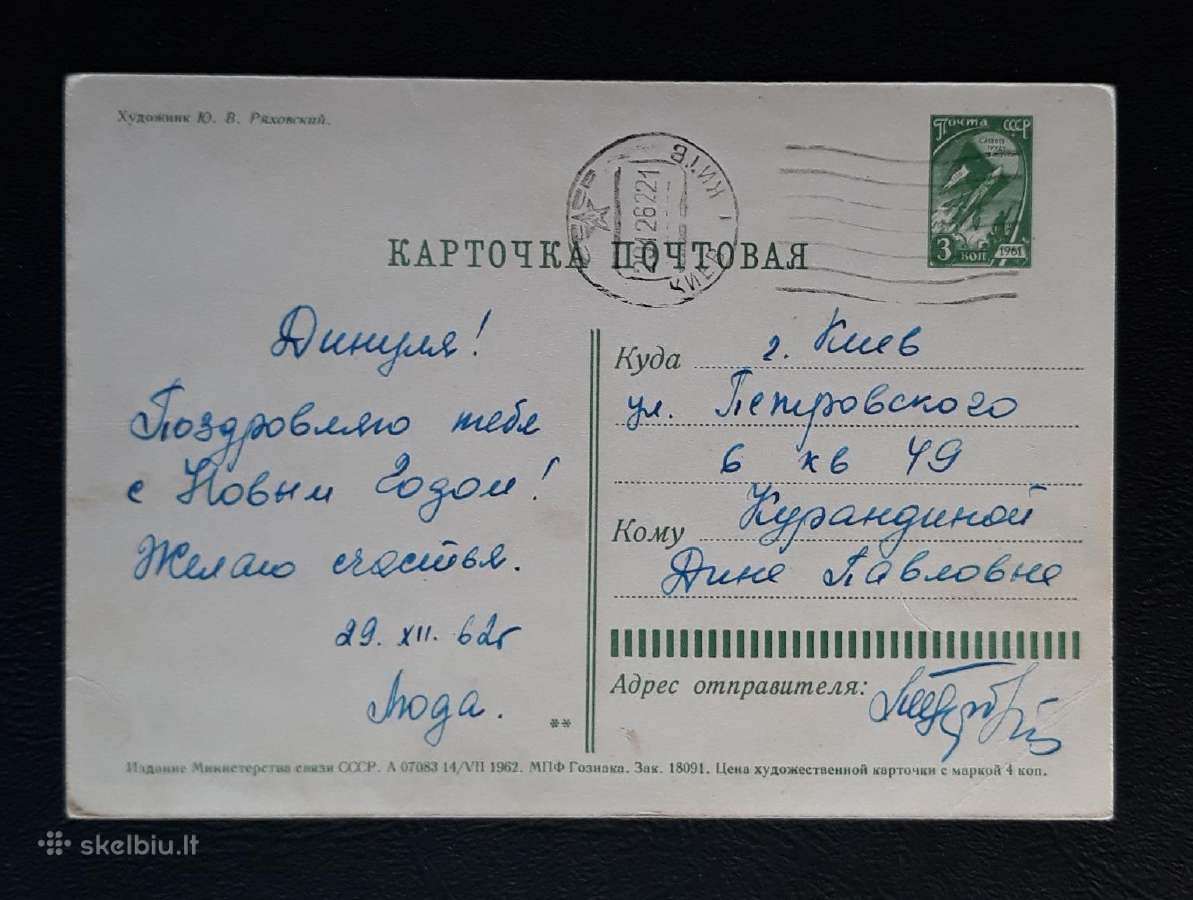 Художник Ю. В. Ряховский.
Почта СССР
3 коп 1961
КИЇВ
КИЕВ
КАРТОЧКА ПОЧТОВАЯ
Динуля!
Поздровляю тебя
с Новым Годом!
Желаю счастья.
29. XII. 62г
Люда.
**
Куда г. Киев
ул. Петровского
6 кв 49
Кому Курандиной
Дине Павловне
Адрес отправителя:
Издание Министерства связи СССР. А 07083 14/VII 1962. МПФ Гознака. Зак. 18091. Цена художественной карточки с маркой 4 коп.
skelbiu.lt